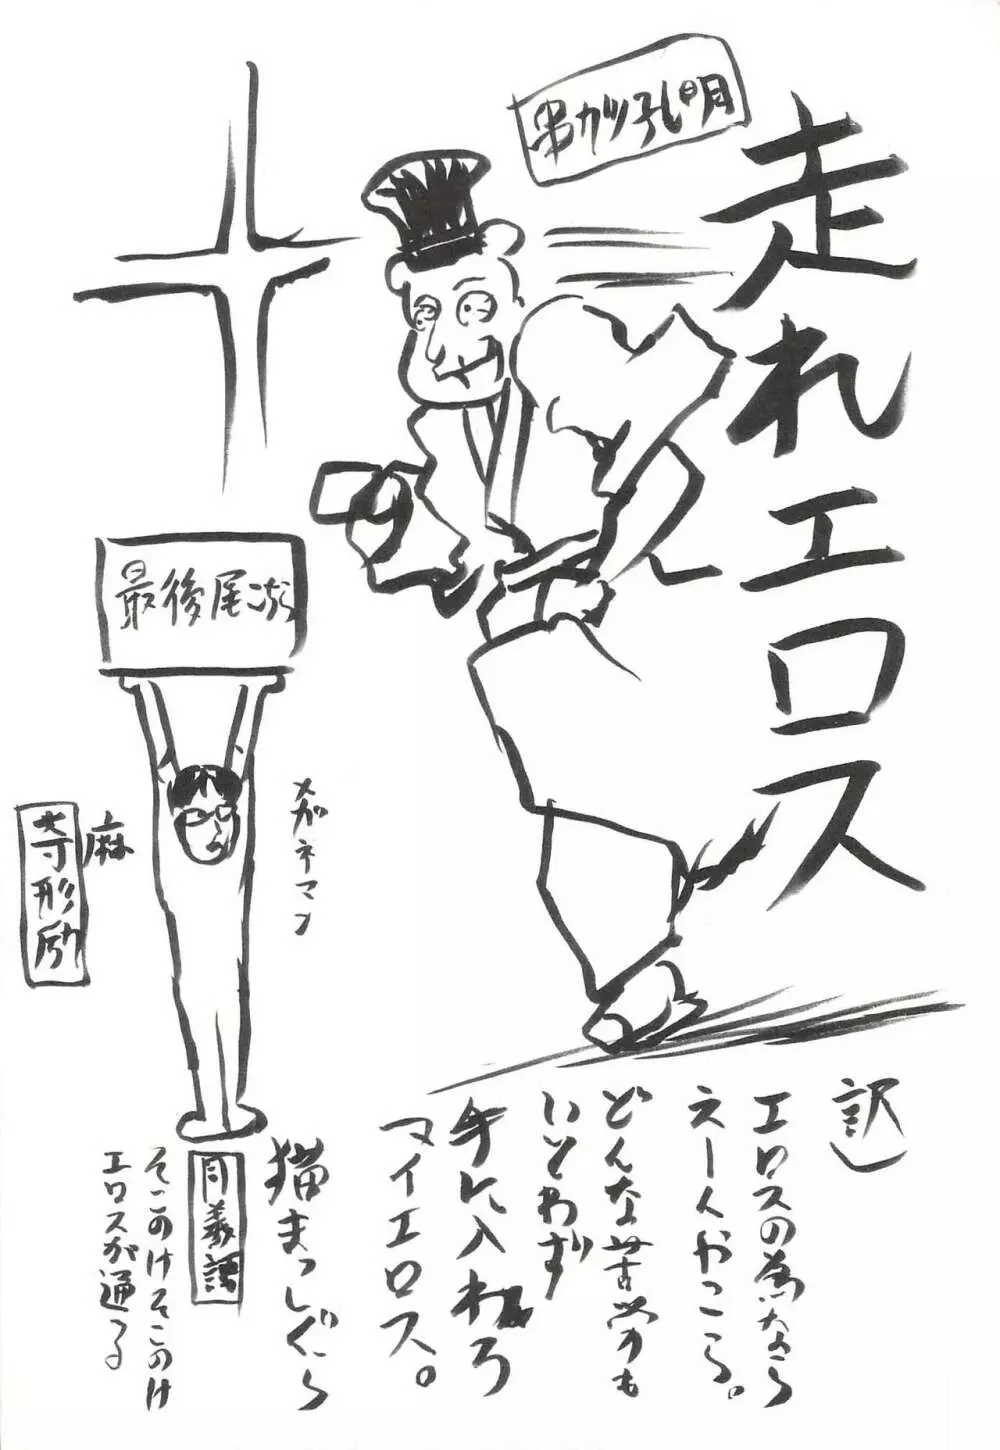 走れエロス
串カツ孔明
最後尾
メガネマン
麻
寺形励
訳
エロスの為なら
えーんやこーら。
どんな苦労も
いとわず
手に入れろ
マイエロス。
猫まっしぐら
同義語
そこのけそこのけ
エロスが通る